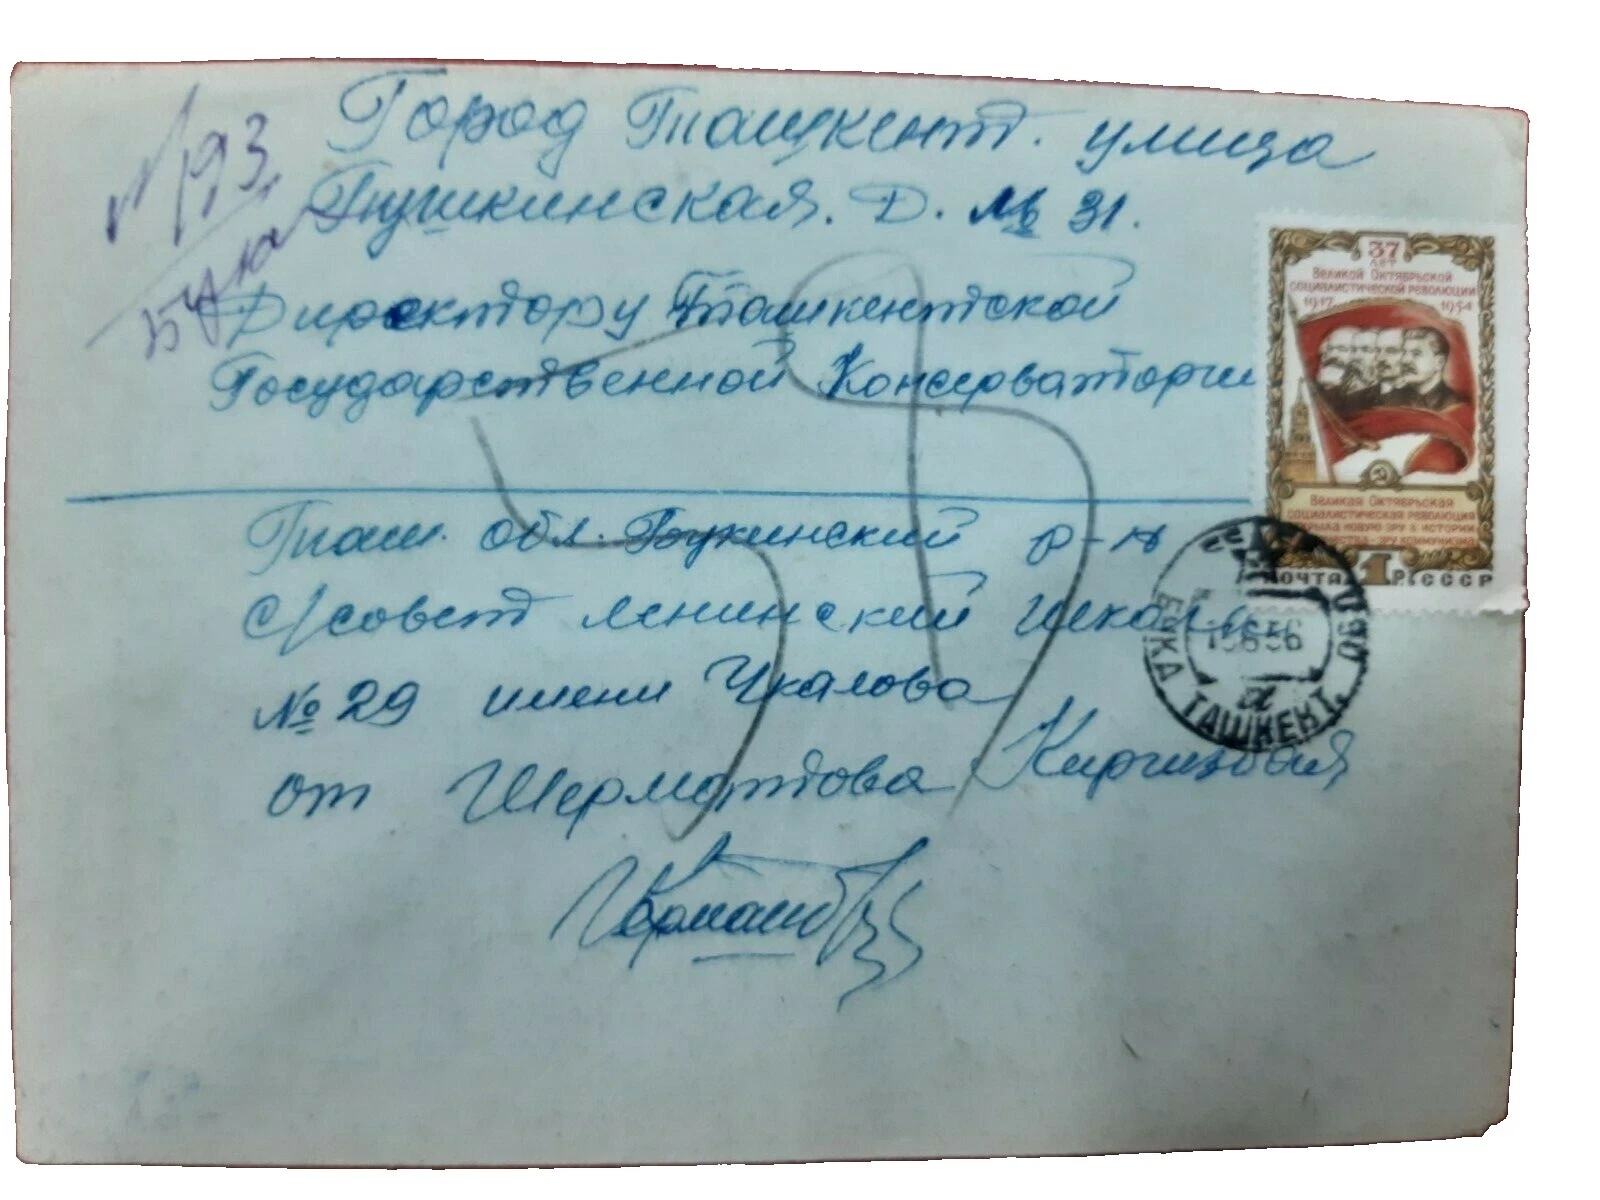 № 93
Город Ташкент. улица
Пушкинская. Д. № 31.
Директору Ташкентской
Государственной Консерватории
37
ЛЕТ
Великой Октябрьской
социалистической революции
1917 1954
Великая Октябрьская
социалистическая революция
открыла новую эру в истории
человечества - эру коммунизма
ПОЧТА 1 Р. СССР
Таш. обл. Букинский р-н
с/совет Ленинский школа
№ 29 имени Чкалова
от Шерматова
БУКА ТАШКЕНТ. ОБЛ
15656
а